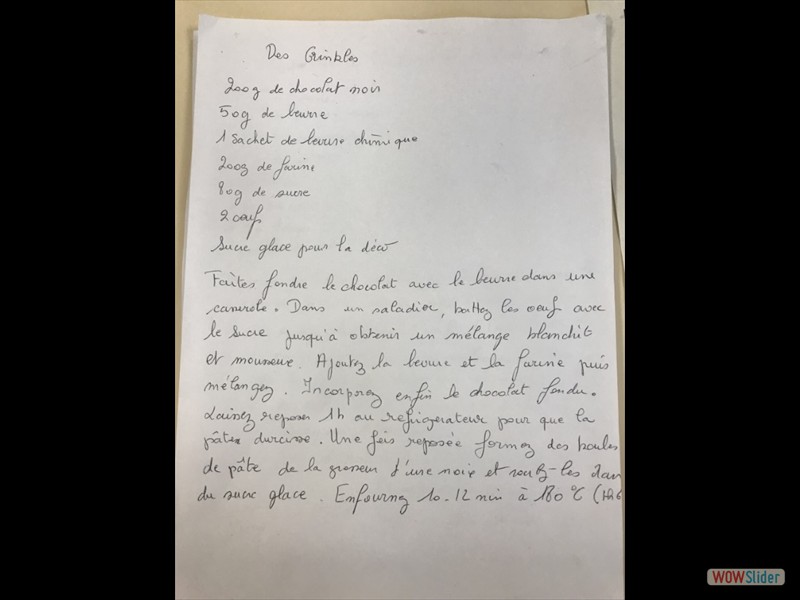 Des Crinkles
200g de chocolat noir
50g de beurre
1 sachet de levure chimique
200g de farine
80g de sucre
2 oeufs
Sucre glace pour la déco
Faites fondre le chocolat avec le beurre dans une
casserole. Dans un saladier, battez les oeuf avec
le sucre jusqu'à obtenir un mélange blanchit
et mousseux. Ajoutez la levure et la farine puis
mélangez. Incorporez enfin le chocolat fondu.
Laissez reposer 1h au refrigerateur pour que la
pâte durcisse. Une fois reposée formez des boules
de pâte de la grosseur d'une noix et roulez-les dans
du sucre glace. Enfournez 10-12 min à 180°C (th6
WOWSlider